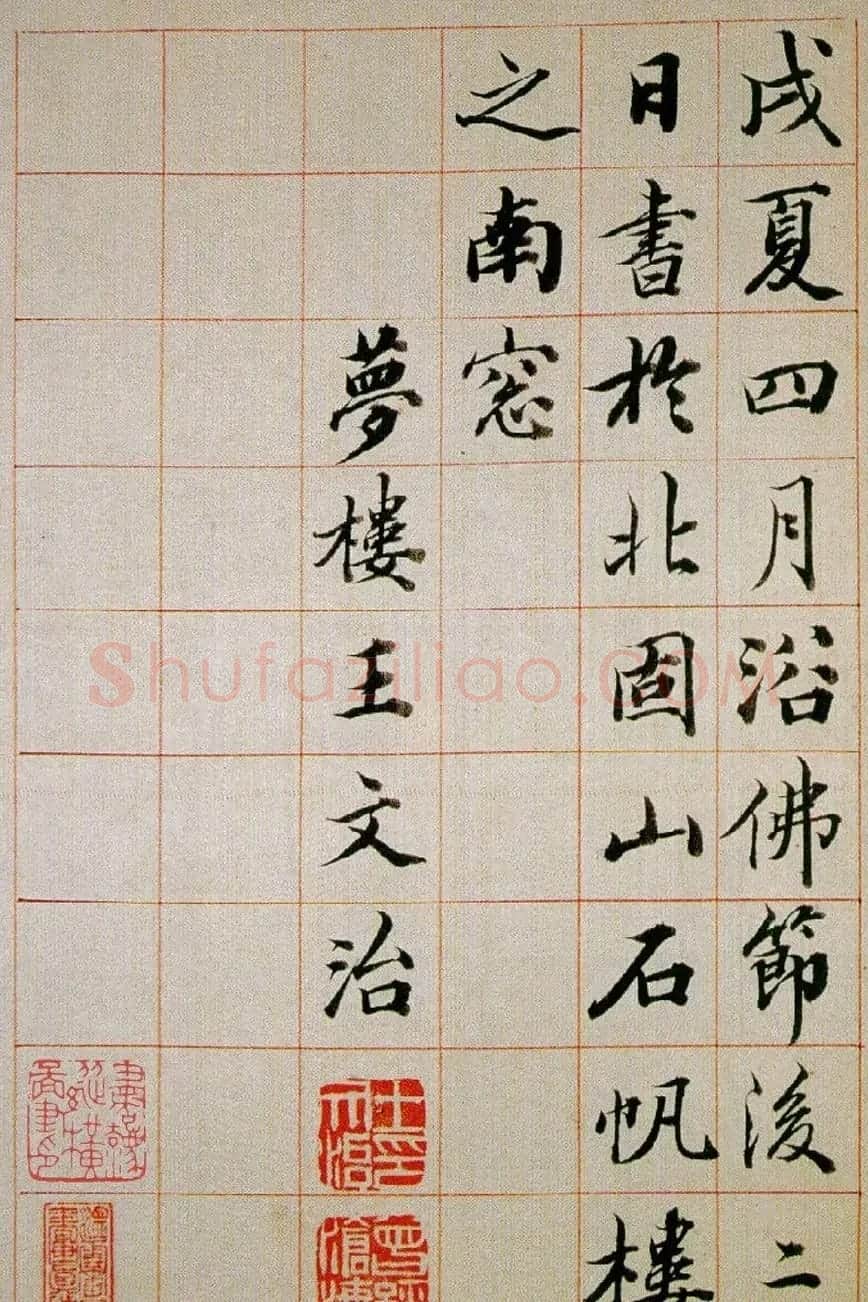 戌夏四月浴佛節後二
日書於北固山石帆樓
之南窓
夢樓王文治
王文治印
Shufaziliao.COM